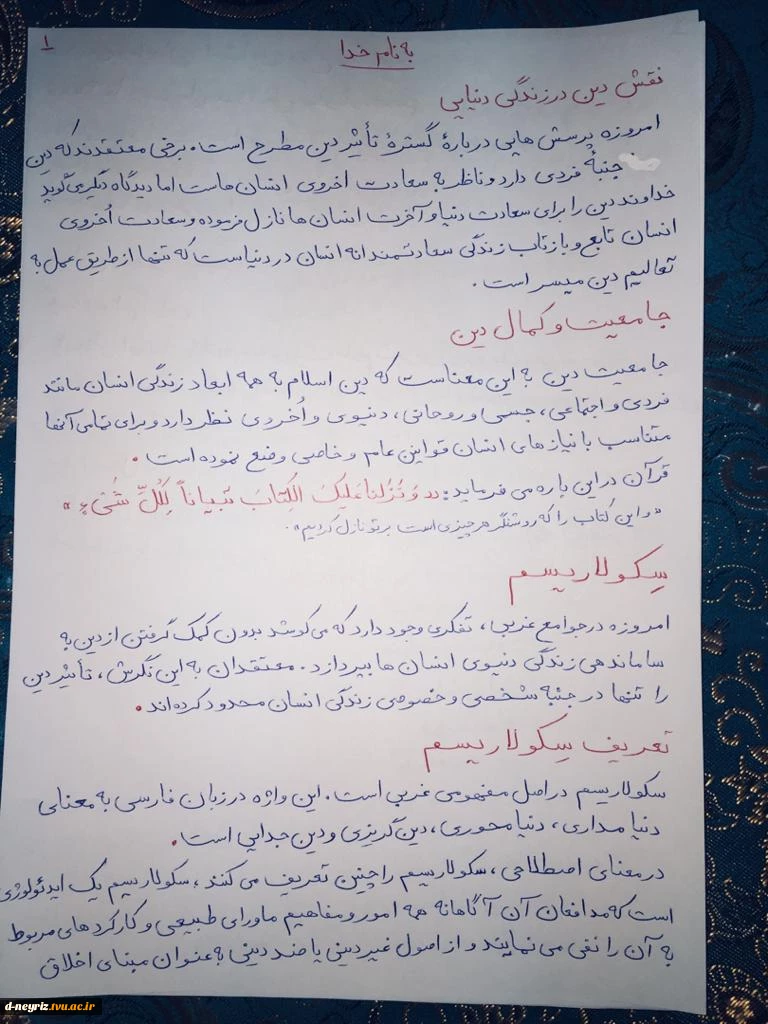 به نام خدا
۱
نقش دین در زندگی دنیایی
امروزه پرسش هایی دربارهٔ گسترهٔ تأثیر دین مطرح است. برخی معتقدند که دین
جنبهٔ فردی دارد و ناظر به سعادت اخروی انسان هاست اما دیدگاه دیگری گوید
خداوند دین را برای سعادت دنیا و آخرت انسان ها نازل فرموده و سعادت اُخروی
انسان تابع و بازتاب زندگی سعادتمندانه انسان در دنیاست که تنها از طریق عمل به
تعالیم دین میسر است.
جامعیت و کمال دین
جامعیت دین به این معناست که دین اسلام به همه ابعاد زندگی انسان مانند
فردی و اجتماعی، جسمی و روحانی، دنیوی و اُخروی نظر دارد و برای تمامی آنها
متناسب با نیازهای انسان قوانین عام و خاصی وضع نموده است.
قرآن در این باره می فرماید: «وَ نَزَّلنا عَلَیکَ الکِتابَ تبیاناً لِکُلِّ شَیْءٍ»
«و این کتاب را که روشنگر هر چیزی است بر تو نازل کردیم».
سِکولاریسم
امروزه در جوامع غربی، تفکری وجود دارد که می کوشد بدون کمک گرفتن از دین به
ساماندهی زندگی دنیوی انسان ها بپردازد. معتقدان به این نگرش، تأثیر دین
را تنها در جنبه شخصی و خصوصی زندگی انسان محدود کرده اند.
تعریف سِکولاریسم
سکولاریسم در اصل مفهومی غربی است. این واژه در زبان فارسی به معنای
دنیا مداری، دنیا محوری، دین گریزی و دین جدایی است.
در معنای اصطلاحی، سکولاریسم را چنین تعریف می کنند، سکولاریسم یک ایدئولوژی
است که مدافعان آن آگاهانه همه امور و مفاهیم ماورای طبیعی و کارکردهای مربوط
به آن را نفی می نمایند و از اصول غیر دینی یا ضد دینی به عنوان مبنای اخلاق
d-neyriz.tvu.ac.ir